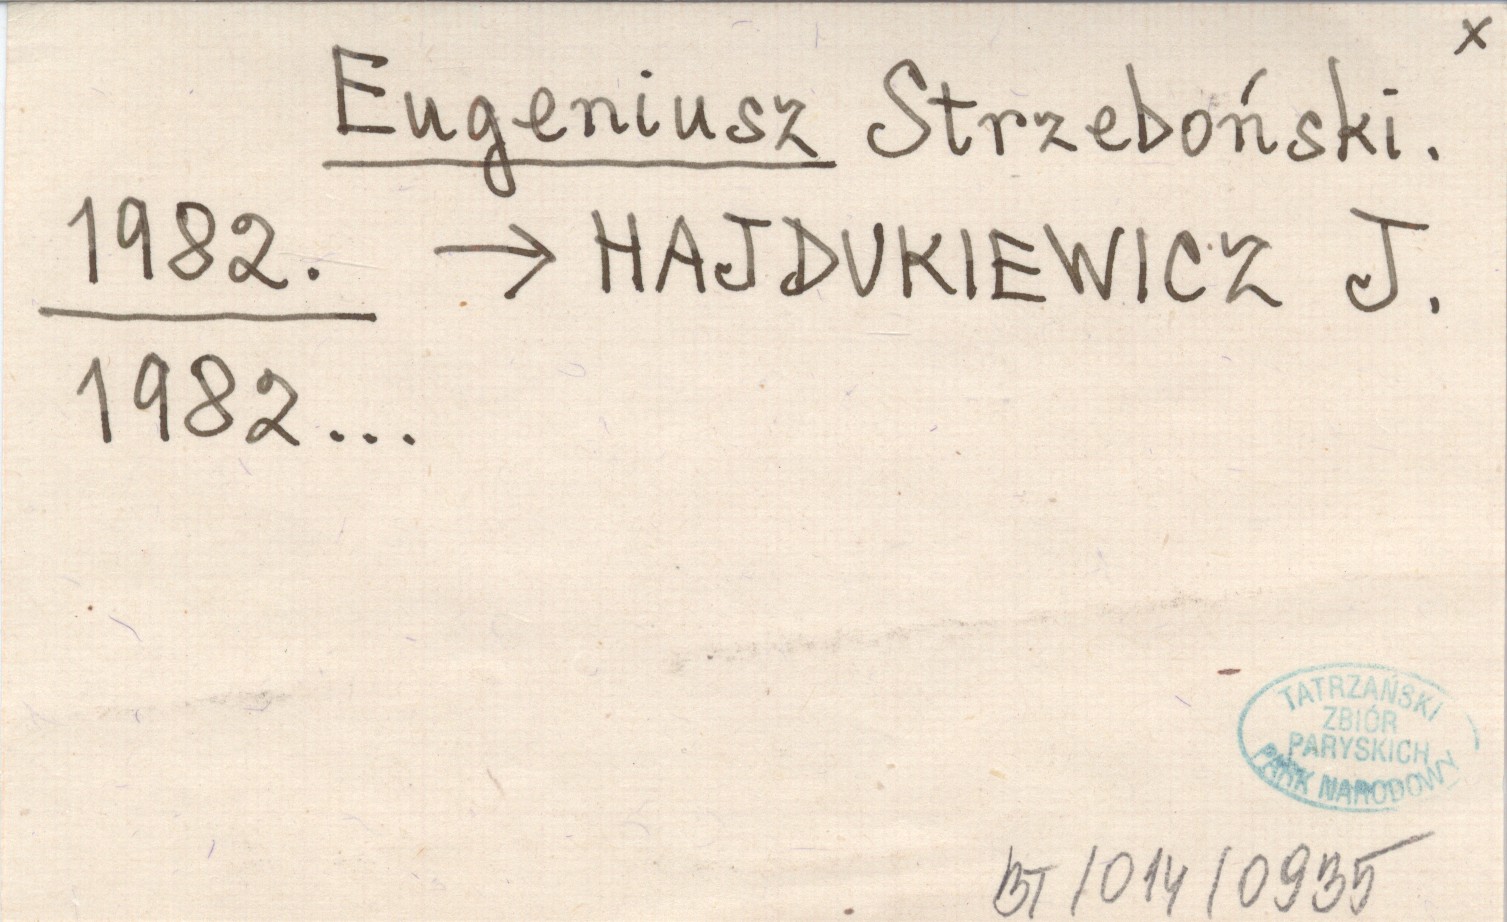 x
Eugeniusz Strzeboński.
1982. → HAJDUKIEWICZ J.
1982...
TATRZAŃSKI
ZBIÓR
PARYSKICH
PARK NARODOWY
BT/014/0935